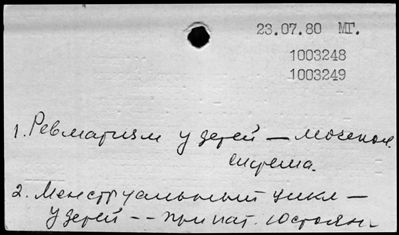 23.07.80 МГ.
1003248
1003249
1. Ревматизм у детей — мочепол.
система.
2. Менструальный цикл —
у детей -- при пат. состоян.